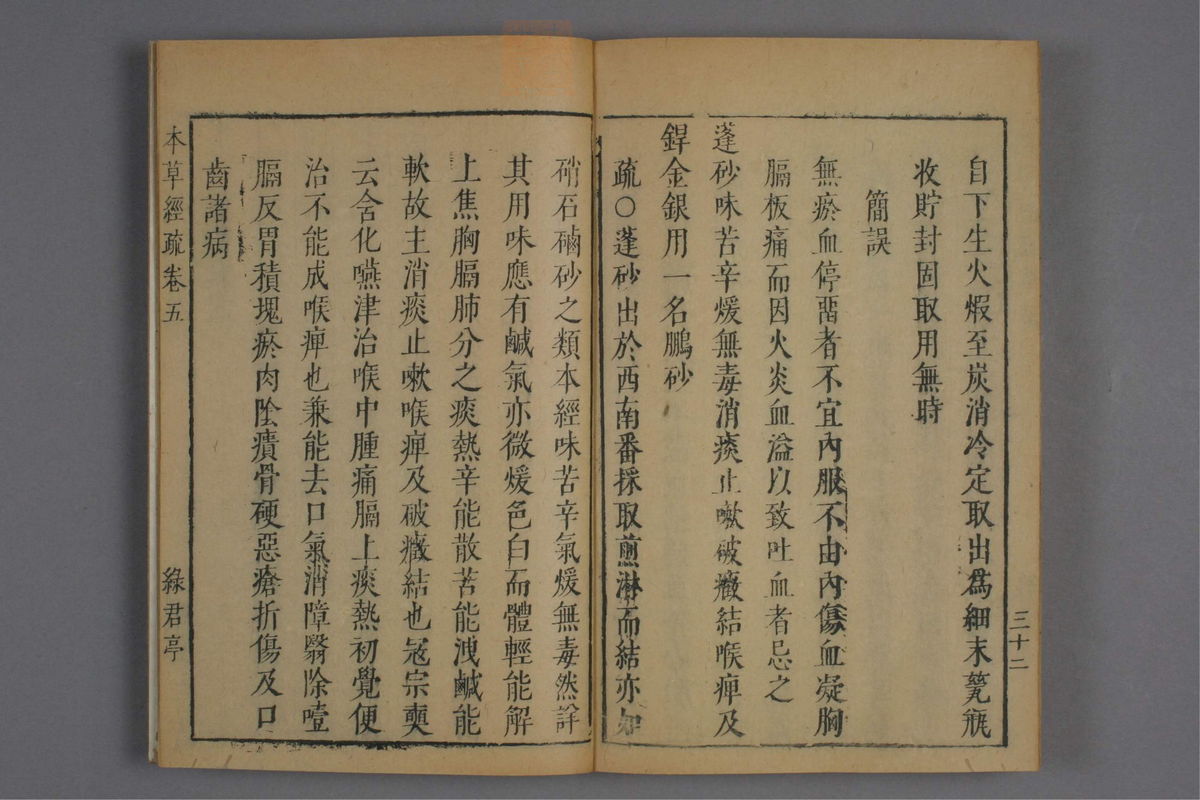 自下生火煆至炭消冷定取出爲細末甆瓶
收貯封固取用無時
簡誤
無瘀血停畱者不宜內服不由內傷血凝胸
膈板痛而因火炎血溢以致吐血者忌之
蓬砂味苦辛煖無毒消痰止嗽破癥結喉痺及
銲金銀用一名鵬砂
疏○蓬砂出於西南番採取煎淋而結亦如
硝石磠砂之類本經味苦辛氣煖無毒然詳
其用味應有鹹氣亦微煖色白而體輕能解
上焦胸膈肺分之痰熱辛能散苦能洩鹹能
軟故主消痰止嗽喉痺及破癥結也冦宗奭
云含化嚥津治喉中腫痛膈上痰熱初覺便
治不能成喉痺也兼能去口氣消障翳除噎
膈反胃積塊瘀肉陰㿉骨硬惡瘡折傷及口
齒諸病
三十二
本草經疏卷五
綠君亭